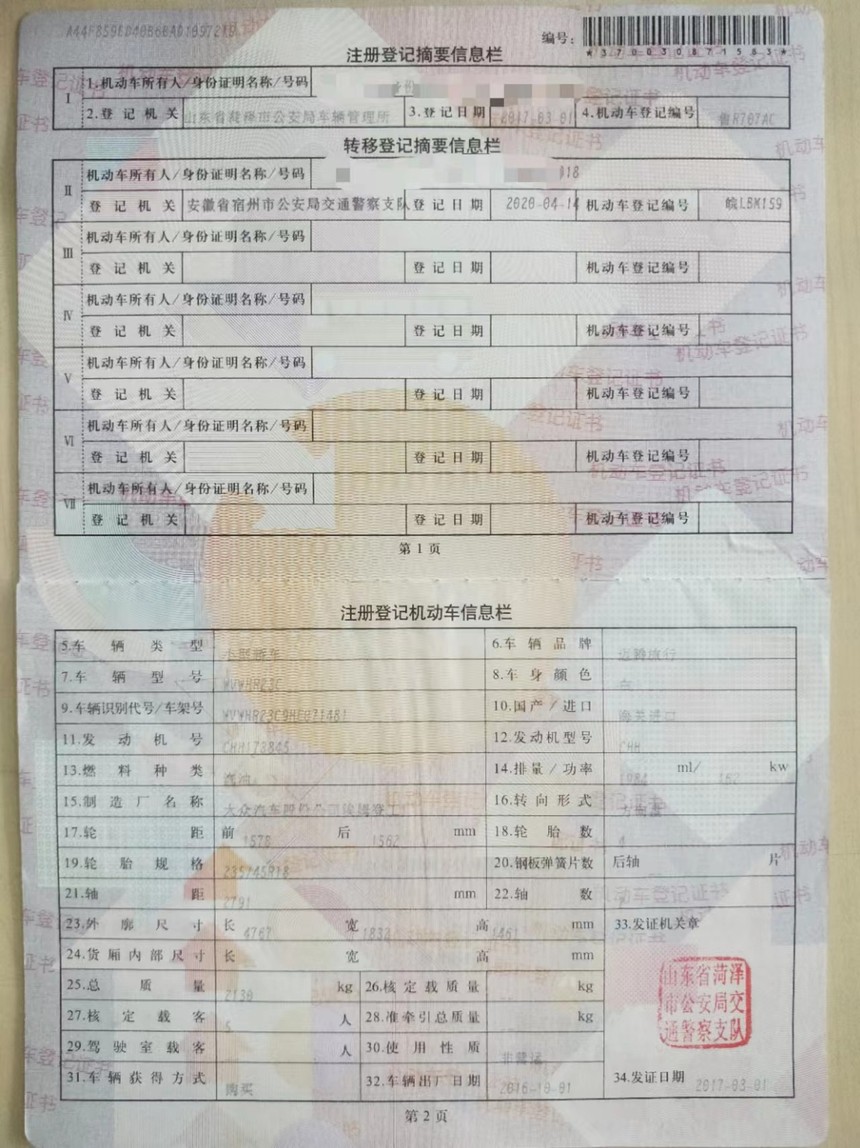 编号:
*370030871563*
注册登记摘要信息栏
Ⅰ 1.机动车所有人/身份证明名称/号码
2.登记机关 山东省菏泽市公安局车辆管理所 3.登记日期 2017-03-01 4.机动车登记编号 鲁R707AC
转移登记摘要信息栏
Ⅱ 机动车所有人/身份证明名称/号码 018
登记机关 安徽省宿州市公安局交通警察支队 登记日期 2020-04-14 机动车登记编号 皖LBM159
Ⅲ 机动车所有人/身份证明名称/号码
登记机关 登记日期 机动车登记编号
Ⅳ 机动车所有人/身份证明名称/号码
登记机关 登记日期 机动车登记编号
Ⅴ 机动车所有人/身份证明名称/号码
登记机关 登记日期 机动车登记编号
Ⅵ 机动车所有人/身份证明名称/号码
登记机关 登记日期 机动车登记编号
Ⅶ 机动车所有人/身份证明名称/号码
登记机关 登记日期 机动车登记编号
第1页
注册登记机动车信息栏
5.车辆类型 小型轿车 6.车辆品牌 迈腾旅行
7.车辆型号 WVWHR23C 8.车身颜色
9.车辆识别代号/车架号 10.国产/进口 海关进口
11.发动机号 12.发动机型号 CHH
13.燃料种类 汽油 14.排量/功率 1984 ml/ 162 kw
15.制造厂名称 16.转向形式
17.轮距 前 1578 后 1562 mm 18.轮胎数 4
19.轮胎规格 235/45R18 20.钢板弹簧片数 后轴 片
21.轴距 2791 mm 22.轴数
23.外廓尺寸 长 4767 宽 1832 高 1461 mm 33.发证机关章
24.货厢内部尺寸 长 宽 高 mm
25.总质量 2130 kg 26.核定载质量 kg
山东省菏泽
市公安局交
通警察支队
27.核定载客 5 人 28.准牵引总质量 kg
29.驾驶室载客 人 30.使用性质 非营运
31.车辆获得方式 购买 32.车辆出厂日期 2016-10-01 34.发证日期 2017-03-01
第2页